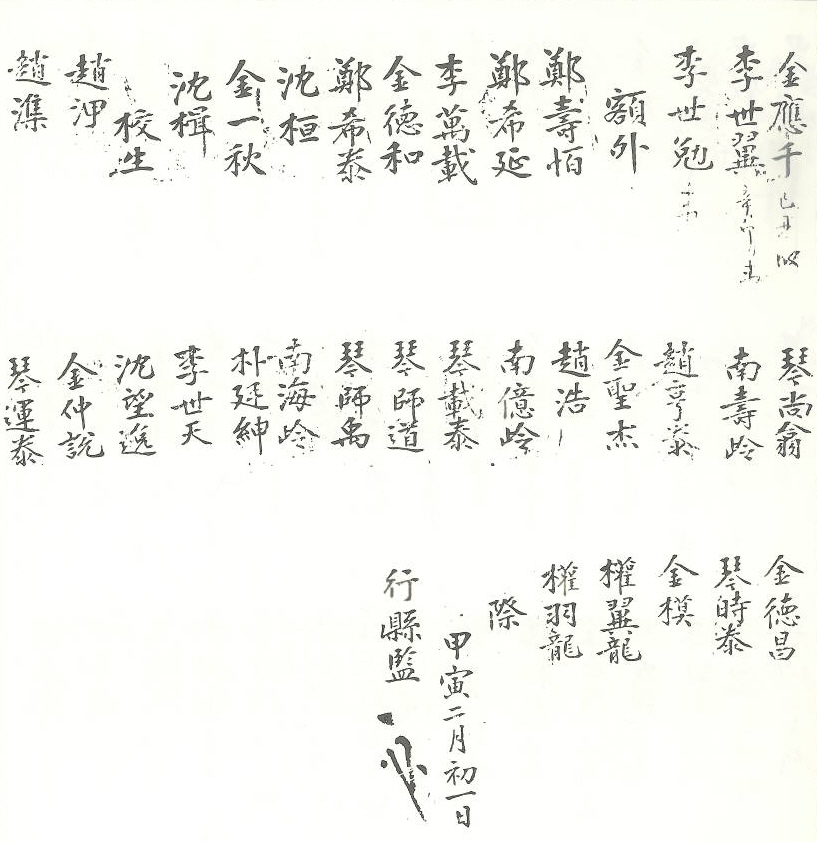 金應千 己丑
李世翼 辛卯
李世勉
額外
鄭壽怕
鄭希延
李萬載
金德和
鄭希泰
沈桓
金一秋
沈楫
校生
趙
趙潗
琴尚翕
南壽岭
趙亨泰
金聖杰
趙浩
南億岭
琴載泰
琴師道
琴師禹
南海岭
朴廷紳
李世天
沈望逸
金仲說
琴運泰
金德昌
琴時泰
金模
權翼龍
權羽龍
際
甲寅二月初一日
行縣監